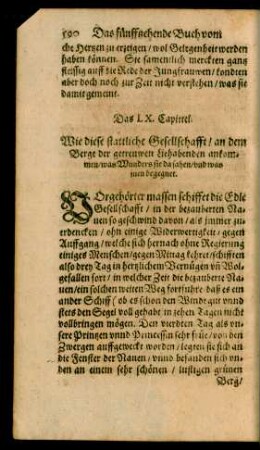 500 Das fünffzehende Buch vom
che Hertzen zu erzeigen / wol Gelegenheit werden
haben können. Sie samentlich merckten gantz
fleissig auff die Rede der Jungfrauwen / kondten
aber doch noch zur Zeit nicht verstehen / was sie
damit gemeint.
Das LX. Capittel.
Wie diese stattliche Gesellschafft / an dem
Berge der getreuwen Liebhabenden ankom-
men / was Wunders sie da sahen / vnd was
nen begegnet.
VOrgehörter massen schiffet die Edle
Gesellschafft / in der bezauberten Na-
uen so geschwind davon / als immer zu-
erdencken / ohn einige Widerwertigkeit / gegen
Auffgang / welche sich hernach ohne Regierung
einiges Menschen / gegen Mittag kehrt / schifften
also drey Tag in hertzlichem Vernügen vñ Wol-
gefallen fort / in welcher Zeit die bezauberte Na-
uen / ein solchen weiten Weg fortfuhre / daß es ein
ander Schiff (ob es schon den Wind gut vnnd
stets den Segel voll gehabt) in zehen Tagen nicht
vollbringen mögen. Den vierdten Tag als vn-
sere Printzen vnnd Princessin sehr früe / von den
Zwergen auffgeweckt worden / legten sie sich an
die Fenster der Nauen / vnnd befanden sich vn-
den an einem sehr schönen / lustigen grünen
Berg /